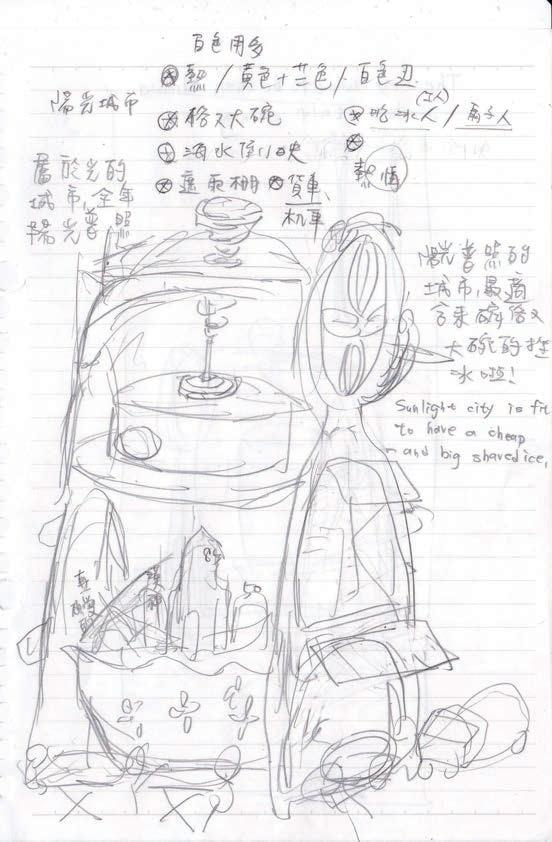 百色用多
熱/黃色+芒色/百色丑
陽光城市
俗又大碗
吃冰人(工人)/ 雨子人
海水倒映
熱情
遮雨棚
貨車、
机車
屬於光的
城市,全年
陽光普照
陽光普照的
城市,最適
合來碗俗又
大碗的挫
冰啦!
Sunlight city is fit
to have a cheap
and big shaved ice.
85
50